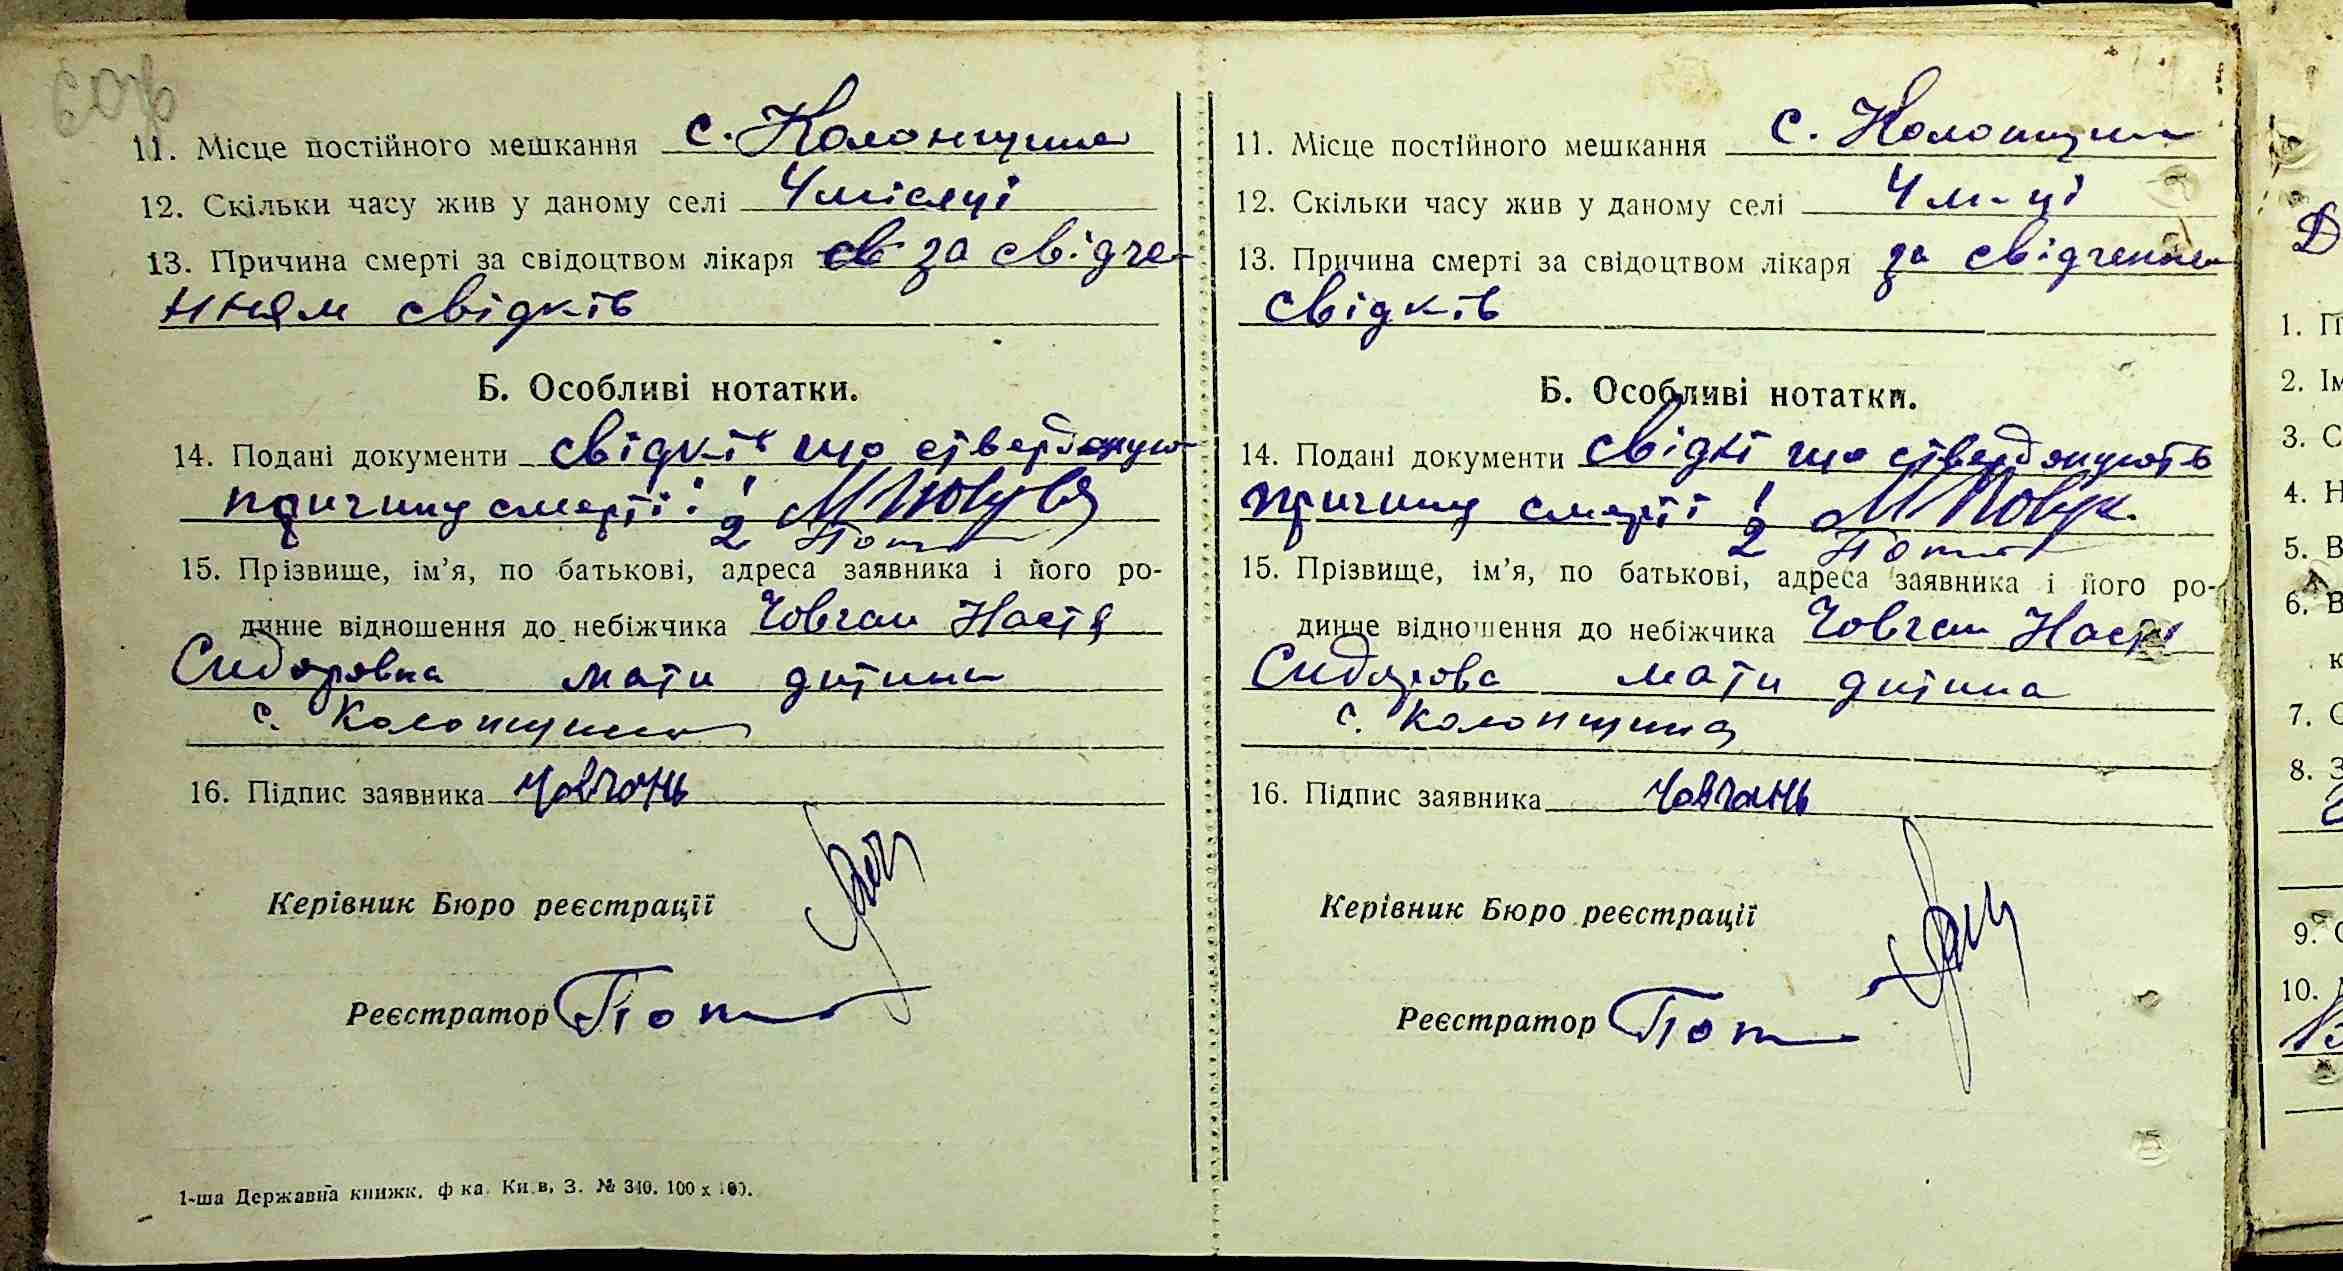 11. Місце постійного мешкання с. Колонщина
12. Скільки часу жив у даному селі 4 місяці
13. Причина смерті за свідоцтвом лікаря св за свідче-
нням свідків
Б. Особливі нотатки.
14. Подані документи свідків що стверджую
причину смерті: 1
2
15. Прізвище, ім’я, по батькові, адреса заявника і його ро-
динне відношення до небіжчика Човган Настя
Сидоровна мати дитини
с. Колонщина
16. Підпис заявника Човгань
Керівник Бюро реєстрації
Реєстратор
1-ша Державна книжк. ф ка. Ки в, З. № 340. 100 х 100.
11. Місце постійного мешкання с. Колонщина
12. Скільки часу жив у даному селі 4 м-ці
13. Причина смерті за свідоцтвом лікаря за свідченням
свідків
Б. Особливі нотатки.
14. Подані документи свідкі що стверджують
причину смерті 1
2
15. Прізвище, ім’я, по батькові, адреса заявника і його ро-
динне відношення до небіжчика Човган Настя
Сидорова мати дитина
с. Колонщина
16. Підпис заявника Човгань
Керівник Бюро реєстрації
Реєстратор
Д
1. П
2. Ім
3. С
4. Н
5. В
6. В
к
7. С
8. З
9. С
10.